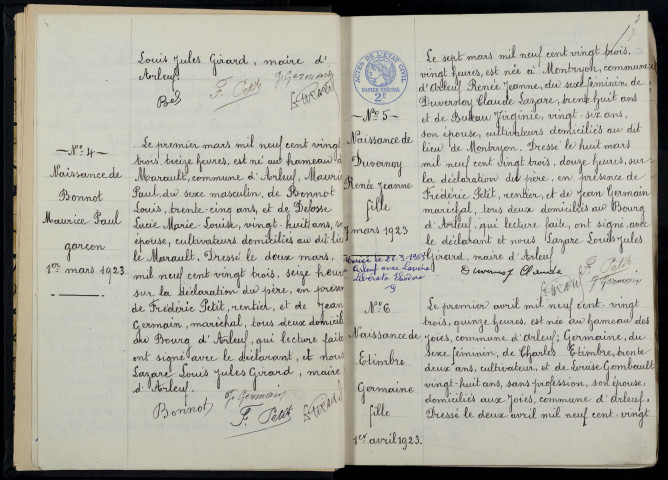 Louis Jules Girard, maire d'
Arleuf.
F. Petit
J Germain
- N° 4 -
Naissance de
Bonnot
Maurice Paul
garçon
1er mars 1923.
Le premier mars mil neuf cent vingt
trois, treize heures, est né au hameau de
Marault, commune d'Arleuf, Mauric
Paul, du sexe masculin, de Bonnot
Louis, trente-cinq ans, et de
Lucie Marie-Louise, vingt-huit ans, son
épouse, cultivateurs domiciliés au dit lieu
le Marault. Dressé le deux mars,
mil neuf cent vingt trois, seize heur
sur la déclaration du père, en présen
de Frédéric Petit, rentier, et de Jean
Germain, maréchal, tous deux domicil
au Bourg d'Arleuf, qui lecture faite
ont signé avec le déclarant, et nous
Lazare Louis Jules Girard, maire
d'Arleuf.
Bonnot
J Germain
F. Petit
3
ACTES DE L'ÉTAT CIVIL
PAPIER SPÉCIAL
2E
- N° 5 -
Naissance de
Duvernoy
Renée Jeanne
fille
7 mars 1923
Arleuf avec
Le sept mars mil neuf cent vingt trois,
vingt heures, est née à Montryon, commune
d'Arleuf Renée Jeanne, du sexe féminin, de
Duvernoy Claude Lazare, trente huit ans
et de Buteau Virginie, vingt-six ans,
son épouse, cultivateurs domiciliés au dit
lieu de Montryon. Dressé le huit mars
mil neuf cent vingt trois, douze heures, sur
la déclaration du père, en présence de
Frédéric Petit, rentier, et de Jean Germain
maréchal, tous deux domiciliés au Bourg
d'Arleuf, qui lecture faite, ont signé avec
le déclarant et nous Lazare Louis Jules
Girard, maire d'Arleuf
Duvernoy Claude
F. Petit
J Germain
N° 6
Naissance de
Etimbre
Germaine
fille
1er avril 1923.
Le premier avril mil neuf cent-vingt
trois, quinze heures, est née au hameau des
Joies, commune d'Arleuf; Germaine, du
sexe féminin, de Charles Etimbre, trente
deux ans, cultivateur, et de Louise Gombault
vingt-huit ans, sans profession, son épouse,
domiciliés aux Joies, commune d'Arleuf.
Dressé le deux avril mil neuf cent-vingt